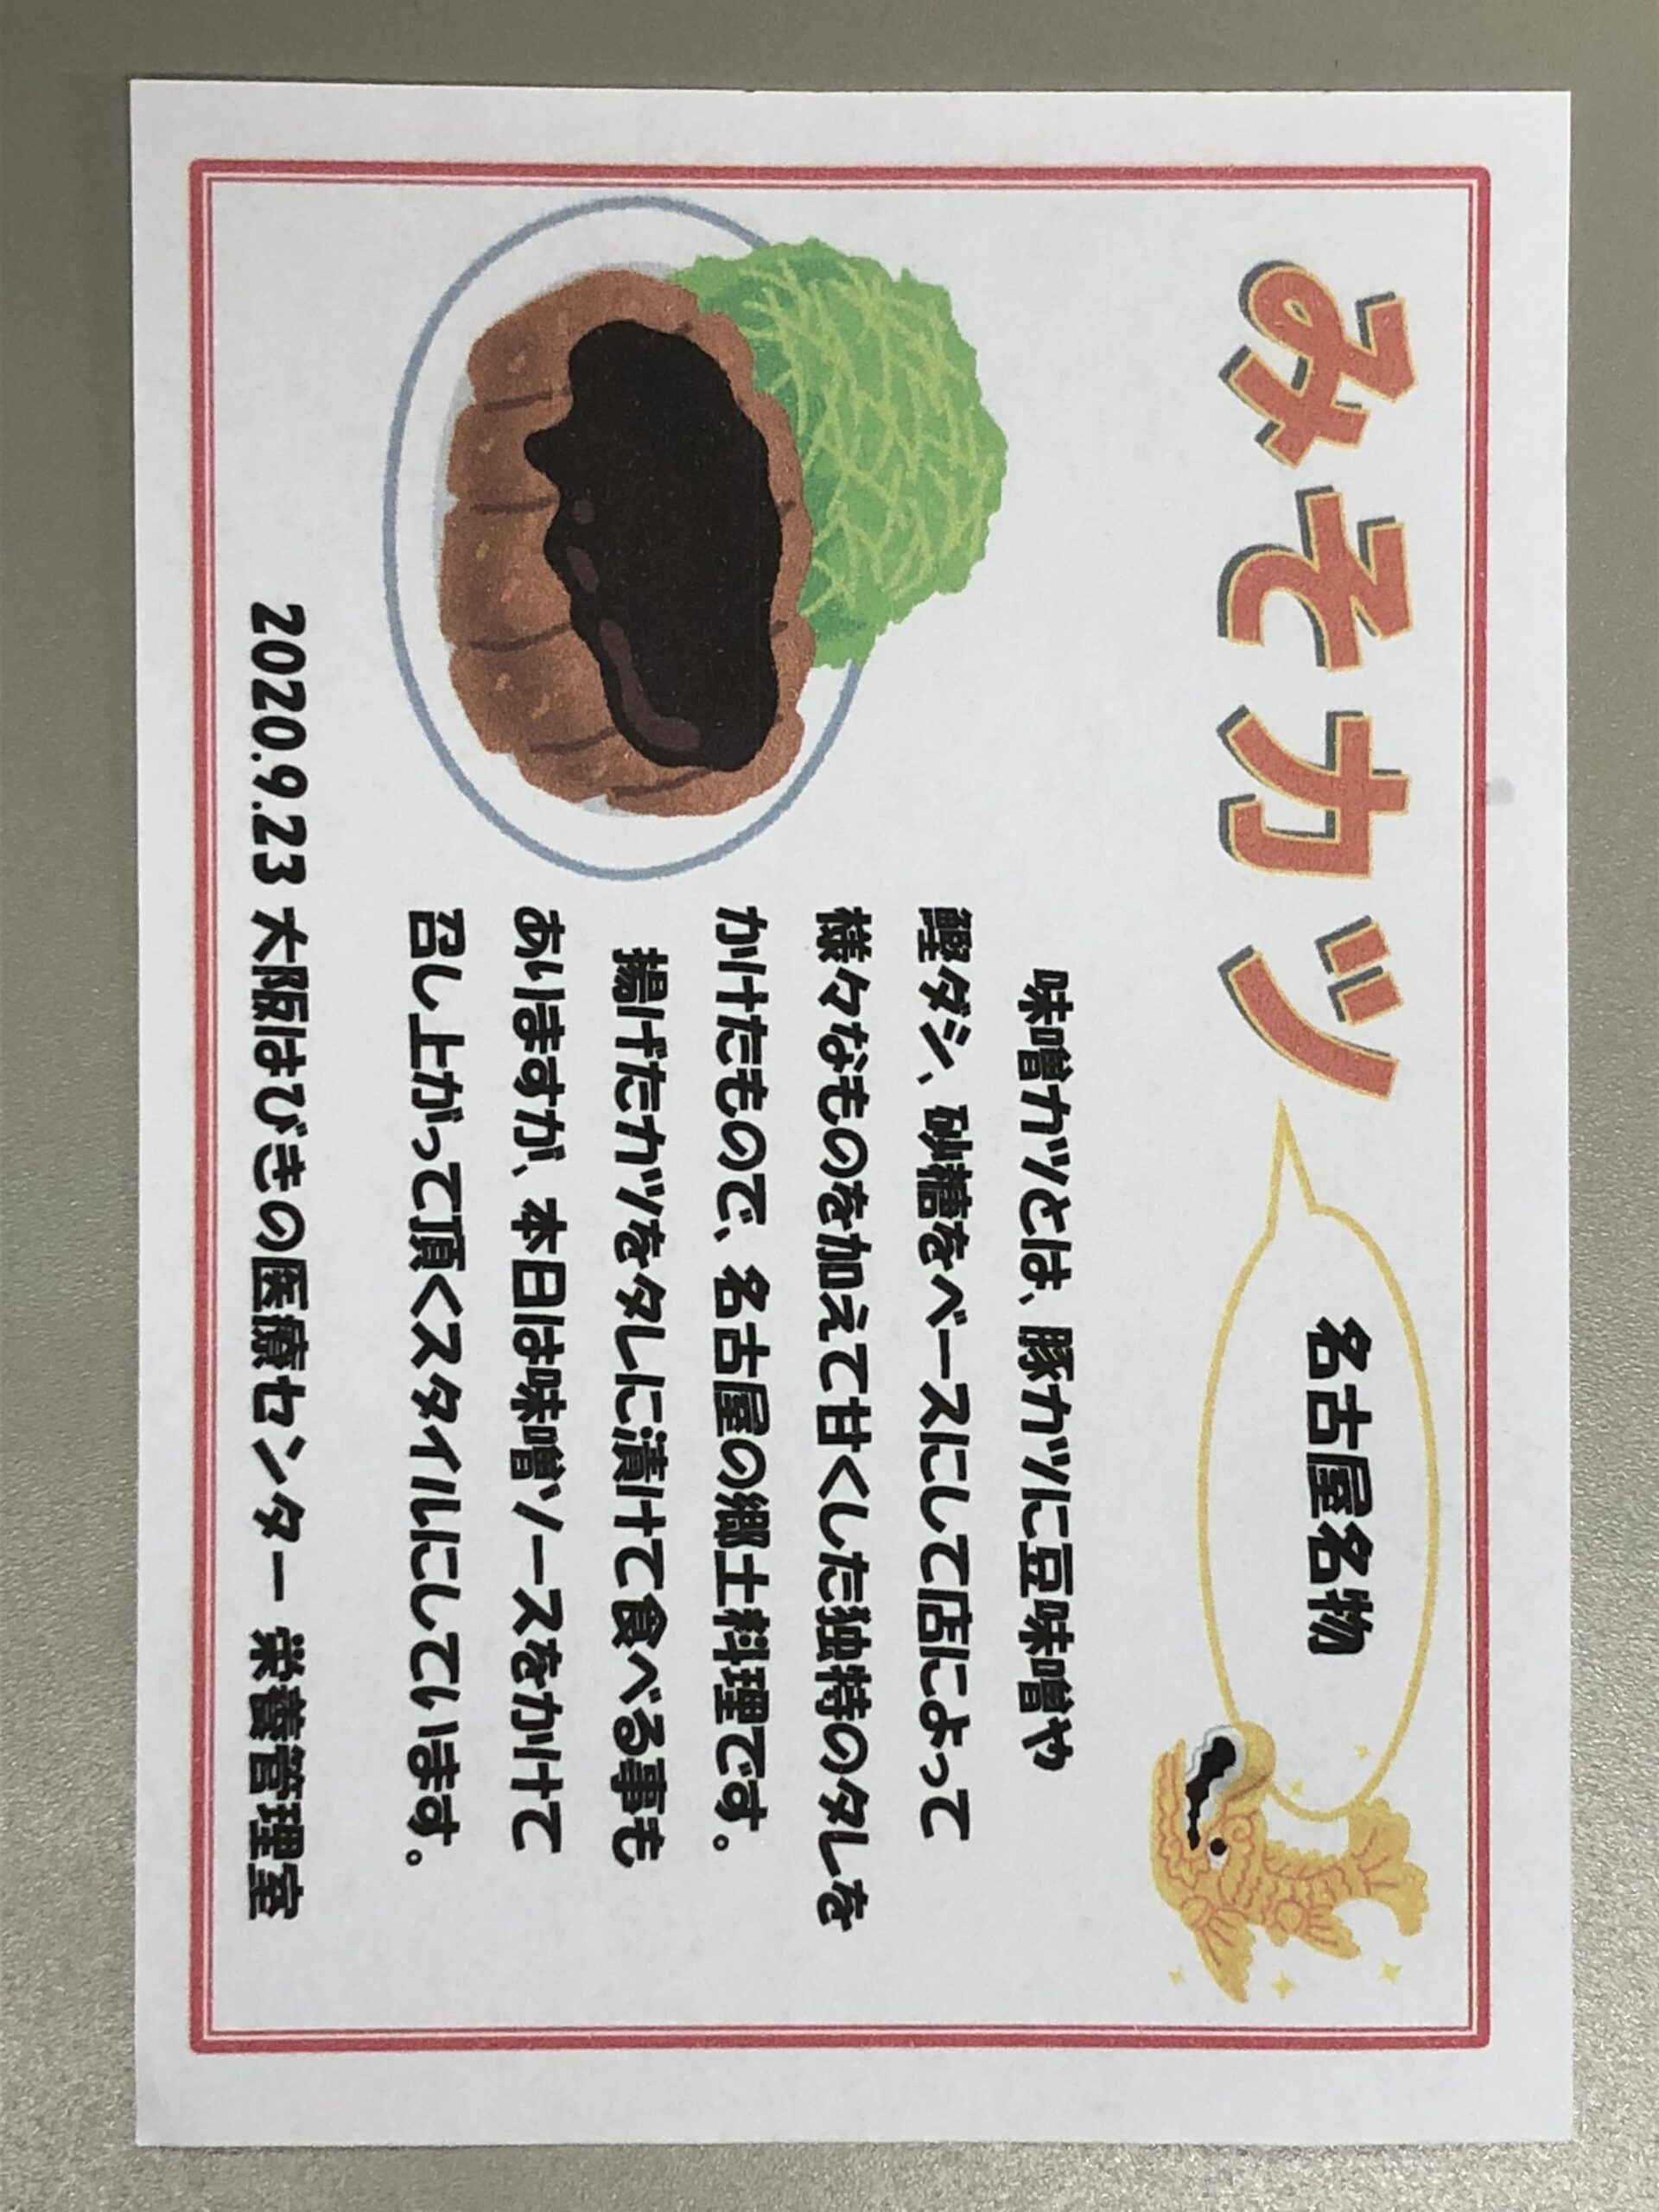 みそカツ
名古屋名物
味噌カツとは、豚カツに豆味噌や
鰹ダシ、砂糖をベースにして店によって
様々なものを加えて甘くした独特のタレを
かけたもので、名古屋の郷土料理です。
揚げたカツをタレに漬けて食べる事も
ありますが、本日は味噌ソースをかけて
召し上がって頂くスタイルにしています。
2020.9.23 大阪はびきの医療センター 栄養管理室